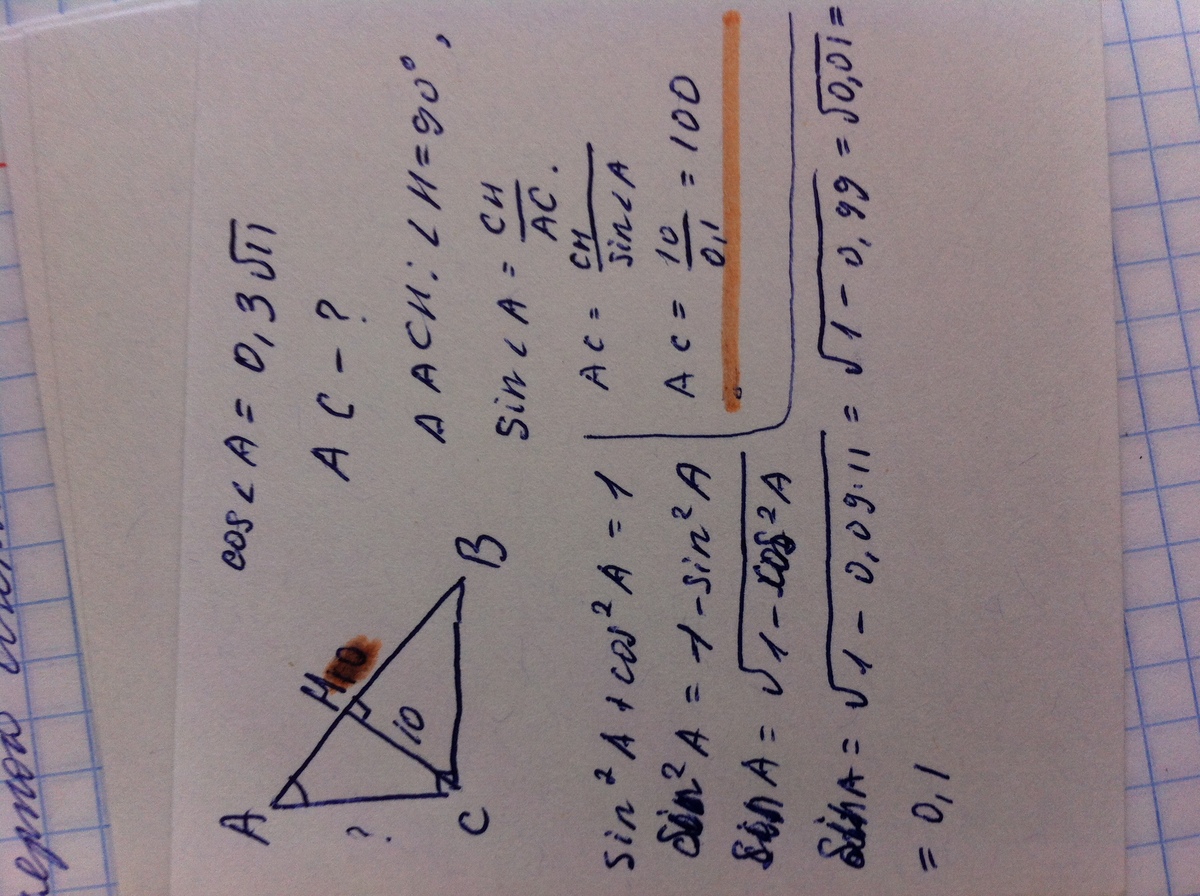 cos∠A = 0,3√11
AC - ?
A
H
10
10
?
C
B
△ACH: ∠H = 90°,
sin∠A = CH/AC.
AC = CH/sin∠A
AC = 10/0,1 = 100
sin²A + cos²A = 1
sin²A = 1 - sin²A
sinA = √1 - cos²A
sinA = √1 - 0,09·11 = √1 - 0,99 = √0,01 =
= 0,1